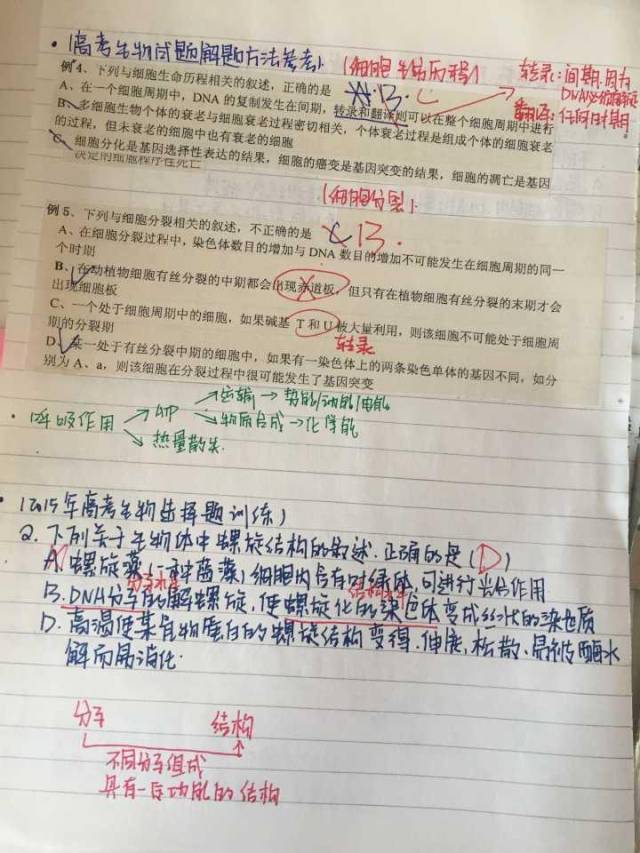 ·(高考生物试题解题方法参考)
例4、下列与细胞生命历程相关的叙述，正确的是
(细胞生命历程)
转录:间期.因为
A、在一个细胞周期中，DNA 的复制发生在间期，转录和翻译则可以在整个细胞周期中进行
翻译:任何时期
B、多细胞生物个体的衰老与细胞衰老过程密切相关，个体衰老过程是组成个体的细胞衰老
的过程，但未衰老的细胞中也有衰老的细胞
C、细胞分化是基因选择性表达的结果，细胞的癌变是基因突变的结果，细胞的凋亡是基因
决定的细胞程序性死亡
(细胞分裂)
例5、下列与细胞分裂相关的叙述，不正确的是
B.
A、在细胞分裂过程中，染色体数目的增加与 DNA 数目的增加不可能发生在细胞周期的同一
个时期
B、在动植物细胞有丝分裂的中期都会出现赤道板，但只有在植物细胞有丝分裂的末期才会
出现细胞板
C、一个处于细胞周期中的细胞，如果碱基 T和U被大量利用，则该细胞不可能处于细胞周
期的分裂期
转录
D、某一处于有丝分裂中期的细胞中，如果有一染色体上的两条染色单体的基因不同，如分
别为 A、a，则该细胞在分裂过程中很可能发生了基因突变
运输→势能/动能/电能
·呼吸作用 ATP
物质合成→化学能
热量散失.
·(2015年高考生物选择题训练)
2.下列关于生物体中螺旋结构的叙述.正确的是(D)
A.螺旋藻(一种蓝藻)细胞内含有叶绿体,可进行光合作用
分子水平 结构水平
B.DNA分子的解螺旋,使螺旋化的染色体变成丝状的染色质
D.高温使某食物蛋白的螺旋结构变得.伸展,松散、易被酶水
解而易消化.
分子 结构
不同分子组成
具有一定功能的结构